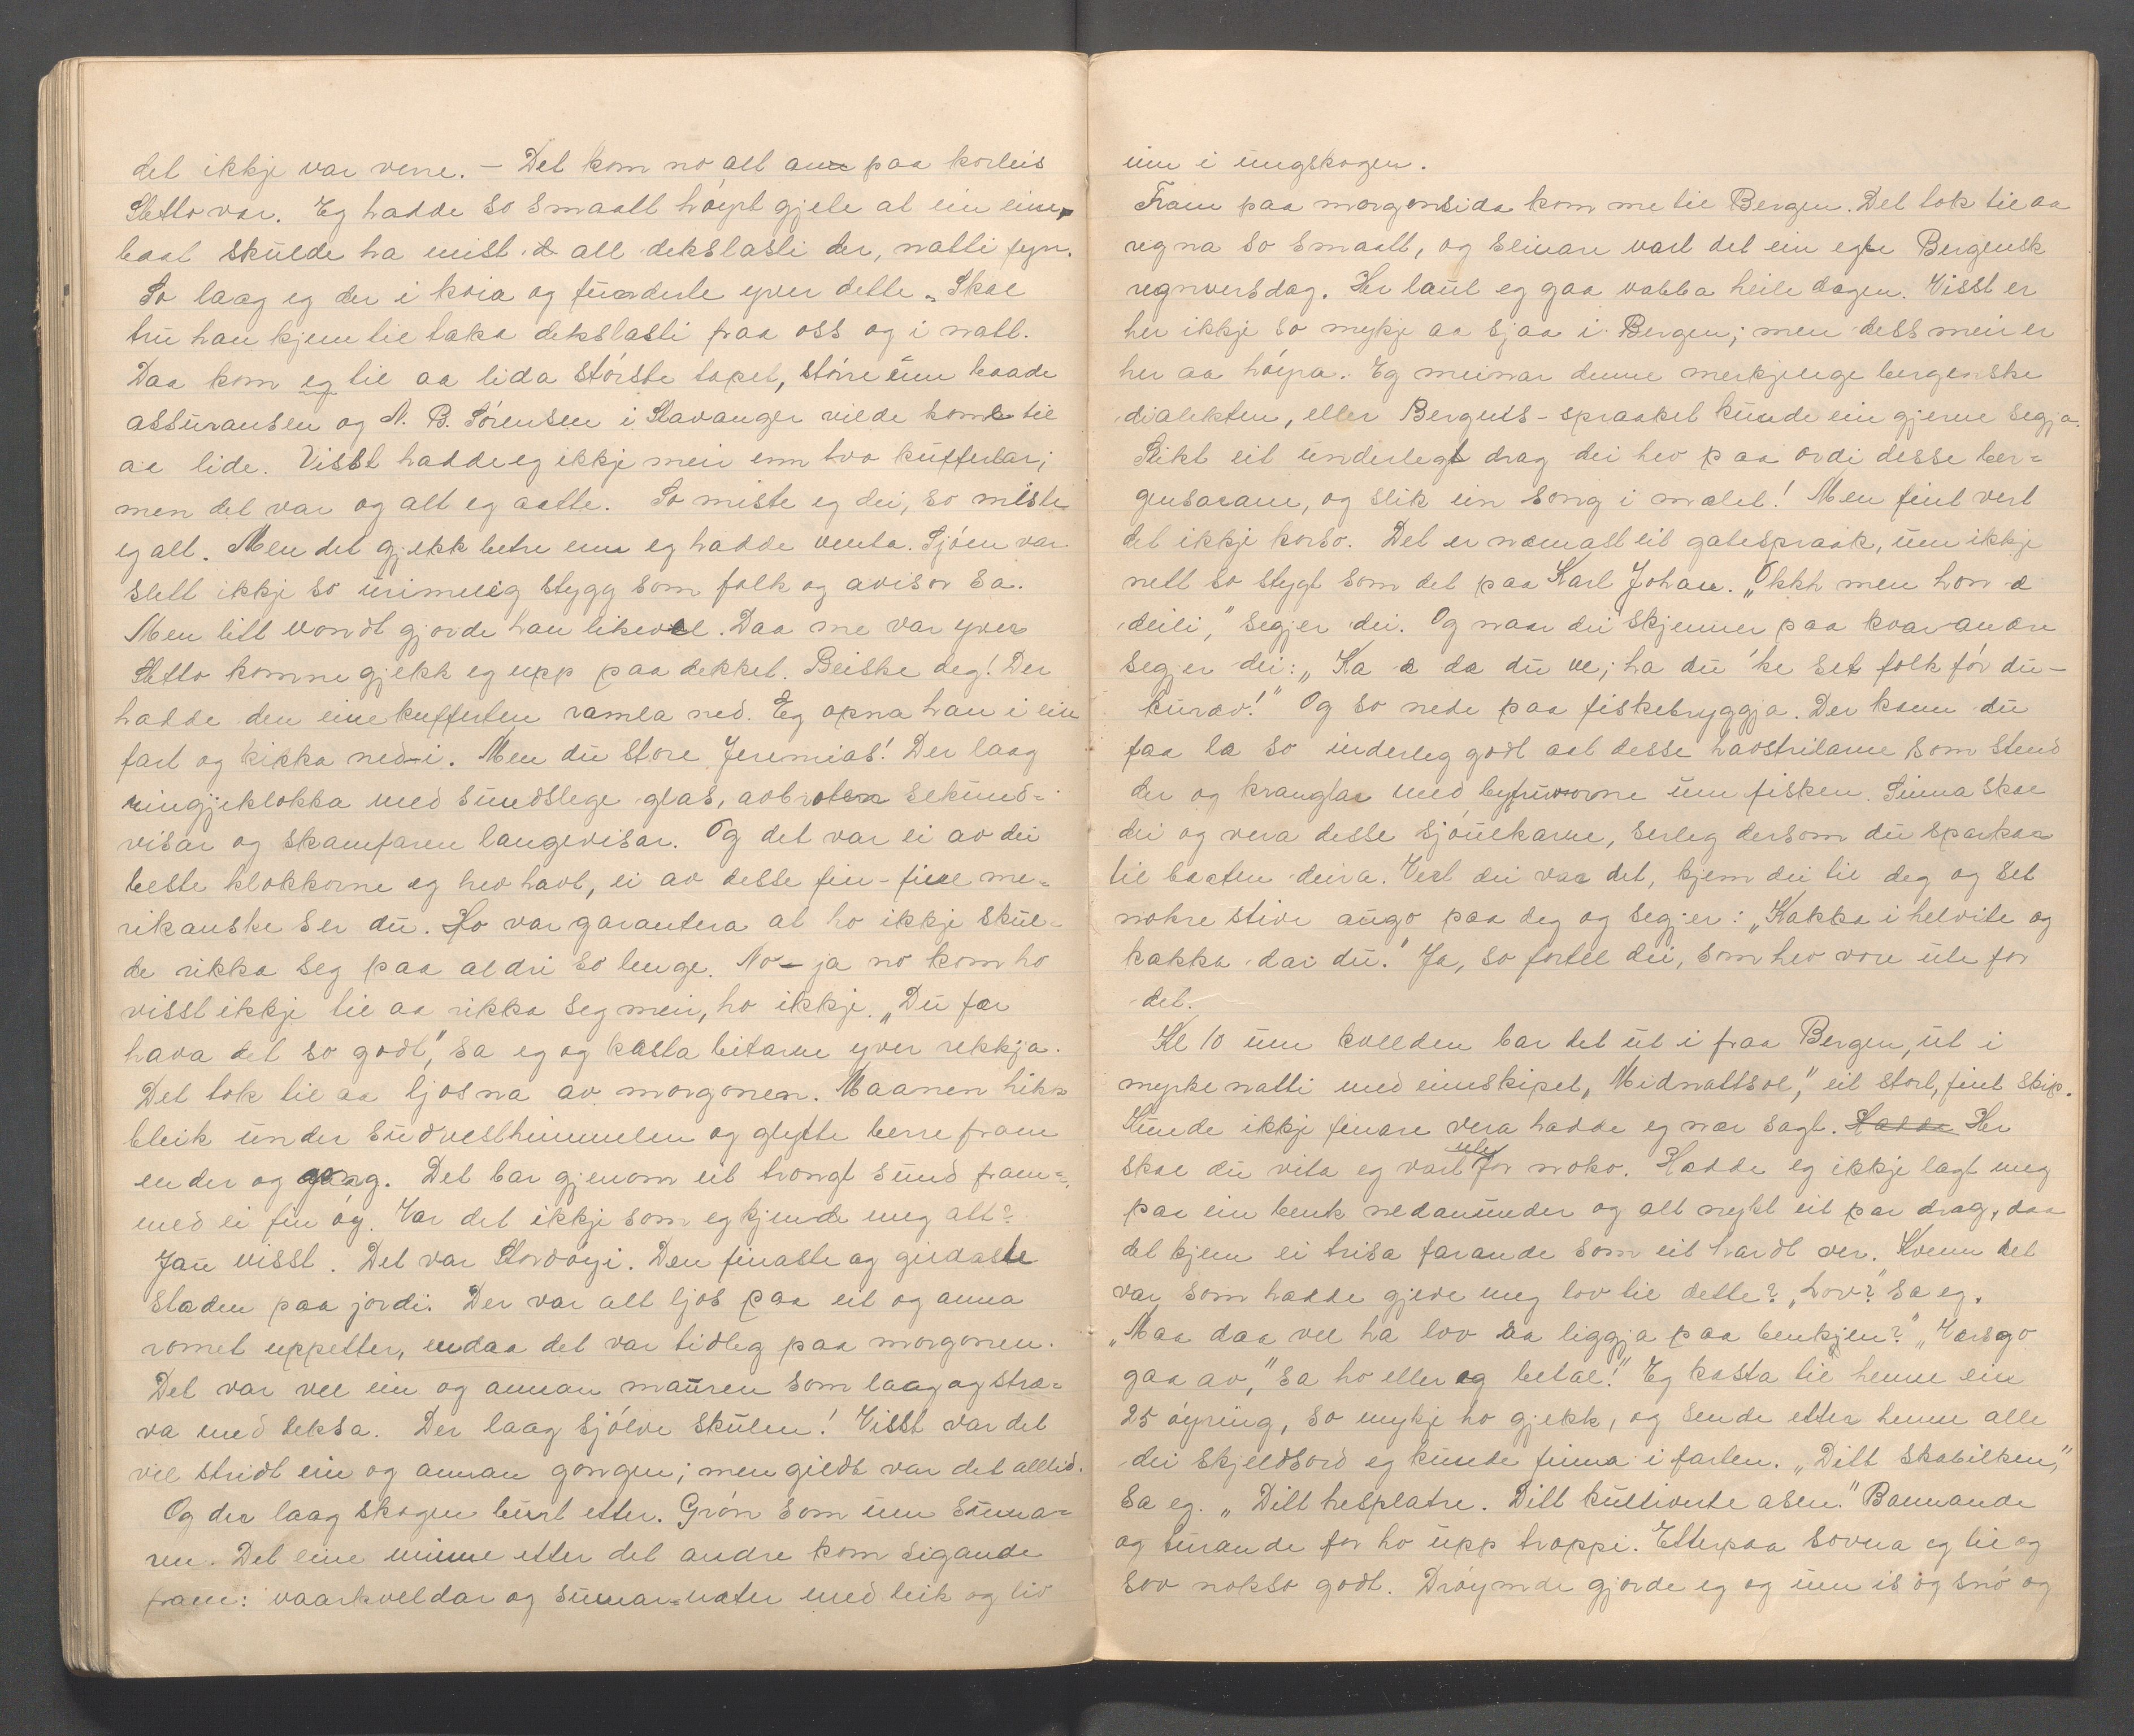 det ikkje var verre. – Det kom no alt an paa korleis
Sletto var. Eg hadde so smaatt høyrt gjete at ein eim-
baat skulde ha mist all dekslasti der, natti fyri.
So laag eg der i koia og funderte yver dette. „Skal
tru han kjem til taka dekslasti fraa oss og i natt.
Daa kom eg til aa lida største tapet, større enn baade
assuransen og N. B. Sørensen i Stavanger vilde kome til
aa lide. Visst hadde eg ikkje meir enn tvo kuffertar;
men det var og alt eg aatte. So miste eg dei, so miste
eg alt. Men det gjekk betre enn eg hadde venta. Sjøen var
slett ikkje so urimeleg stygg som folk og avisor sa.
Men litt vondt gjorde han likevel. Daa me var yver
Sletto komne gjekk eg upp paa dekket. Beiske deg! Der
hadde den eine kufferten ramla ned. Eg opna han i ein
fart og kikka ned-i. Men du store Jeremias! Der laag
ringjeklokka med sundslege glas, avbroten sekund-
visar og skamfaren langevisar. Og det var ei av dei
beste klokkorne eg hev havt, ei av desse fin-fine me-
rikanske ser du. Ho var garantera at ho ikkje skul-
de rikka seg paa aldri so lenge. No – ja no kom ho
visst ikkje til aa rikka seg meir, ho ikkje. „Du fær
hava det so godt," sa eg og kasta bitarne yver rekkja.
Det tok til aa ljosna av morgonen. Maanen hekk
bleik under sudvesthimmelen og glytte berre fram
en der og gong. Det bar gjenom eit trongt sund fram-
med ei fin øy. Var det ikkje som eg kjende meg att?
Jau visst. Det var Stordøyi. Den finaste og gildaste
staden paa jordi. Der var alt ljos paa eit og anna
romet uppetter, endaa det var tidleg paa morgonen.
Det var vel ein og annan mauren som laag og stræ-
va med leksa. Der laag sjølve skulen! Visst var det
vel stridt ein og annan gongen; men gildt var det alltid.
Og der laag skogen burt etter. Grøn som um suma-
ren. Det eine minne etter det andre kom sigande
fram: vaarkveldar og sumar-næter med leik og liv
inn i ungskogen.
Fram paa morgonsida kom me til Bergen. Det tok til aa
regna so smaatt, og slinare vart det ein egte Bergensk
regnversdag. Her laut eg gaa vabba heile dagen. Visst er
her ikkje so mykje aa sjaa i Bergen; men dess meir er
her aa høyra. Eg meinar denne merkjelege bergenske
dialekten, eller Bergens-spraaket kunde ein gjerne segja.
Slikt eit underlegt drag dei hev paa ordi desse ber-
gensarane, og slik ein song i mælet! Men fint vert
det ikkje korso. Det er næmast eit gatespraak, um ikkje
nett so stygt som det paa Karl Johan. „Okkh men hon æ
deili," segjer dei. Og naar dei skjenner paa kvarandre
segjer dei: „Ka æ da du vel; ha du 'ke set folk før du –
kuræv!" Og so nede paa fiskebryggja. Der kann du
faa læ so inderleg godt aat desse havstrilarne som stend
der og kranglar med byfruvorne um fisken. Sinna skal
dei og vera desse sjøulkarne, serleg dersom du sparkar
til baaten deira. Vert dei var det, kjem dei til deg og set
nokre stive augo paa deg og segjer: „Kakka i helvite og
kakka dai du." Ja, so fortel dei, som hev vore ute for
det.
Kl 10 um kvelden bar det ut i fraa Bergen, ut i
myrke natti med eimskipet, „Midnattsol," eit stort, fint skip.
Kunde ikkje finare vera hadde eg nær sagt. Hadde Her
skal du vita eg vart ute for noko. Hadde eg ikkje lagt meg
paa ein benk nedanunder og alt nykt eit par drag, daa
det kjem ei trisa farande som eit hardt ver. Kvenn det
var som hadde gjeve meg lov til dette? „Lov?" sa eg.
„Maa daa vel ha lov aa liggja paa benkjen?" „Værsgo
gaa av," sa ho eller og betal!" Eg kasta til henne ein
25 øyring, so mykje ho gjekk, og sende etter henne alle
dei skjeldsord eg kunde finna i farten. „Ditt skabilken,"
sa eg. „Ditt hespletre. Ditt kultiverte asen." Bannande
og turande for ho upp troppi. Etterpaa sovna eg til og
sov nokso godt. Drøymde gjorde eg og um is og snø og